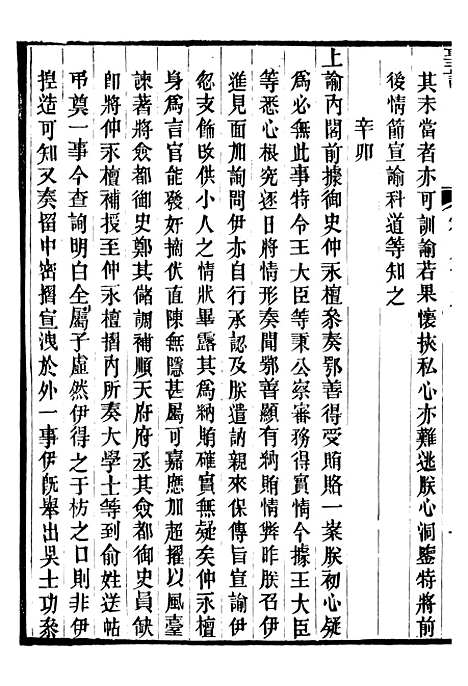 其未當者亦可訓諭若果懷挾私心亦難逃朕心洞鑒特將前
後情節宣諭科道等知之
辛卯
上諭內閣前據御史仲永檀叅奏鄂善得受賄賂一案朕初心疑
為必無此事特令王大臣等秉公察審務得實情今據王大臣
等悉心根究逐日將情形奏聞鄂善顯有納賄情弊昨朕召伊
進見面加詢問伊亦自行承認及朕遣訥親來保傳旨宣諭伊
忽支飾改供小人之情狀畢露其為納賄確實無疑矣仲永檀
身為言官能發奸摘伏直陳無隱甚屬可嘉應加超擢以風臺
諫著將僉都御史鄭其儲調補順天府府丞其僉都御史員缺
卽將仲永檀補授至仲永檀摺內所奏大學士等到俞姓送帖
弔奠一事今查詢明白全屬子虛然伊得之于枋之口則非伊
捏造可知又奏留中密摺宣洩於外一事伊旣舉出吳士功叅